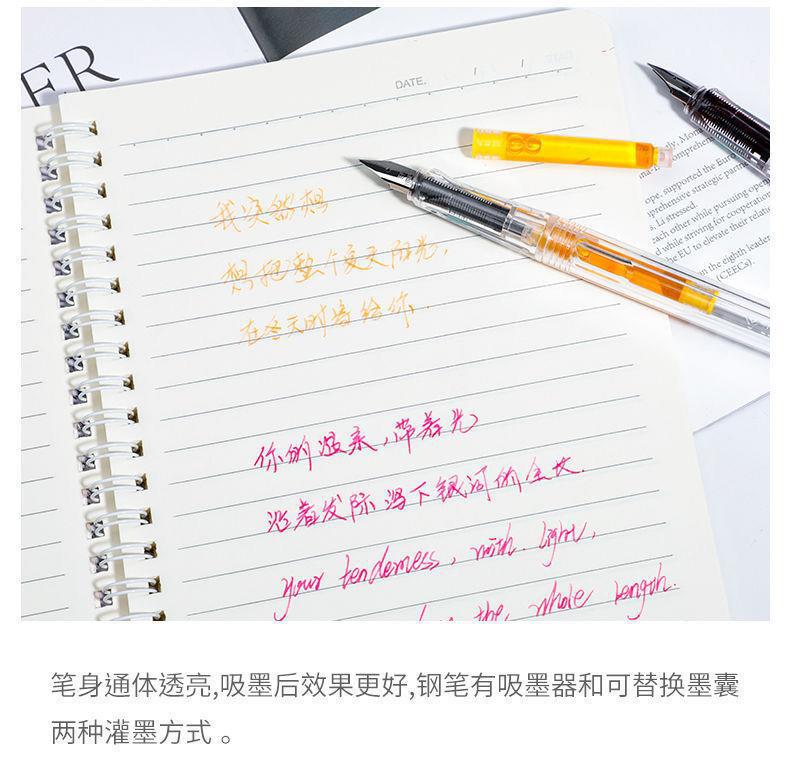 ER
DATE.
我突然想
想把整个夏天阳光,
在冬天时寄给你.
你的温柔,带着光
沿着发际落下银河的全长.
your tenderness, with light,
the whole length.
ope, supported the Euro
prehensive strategic partn
, Li stressed.
each other while pursuing open
d while striving for cooperation
he EU to elevate their relati
on the eighth leader
(CEECs).
笔身通体透亮,吸墨后效果更好,钢笔有吸墨器和可替换墨囊
两种灌墨方式。